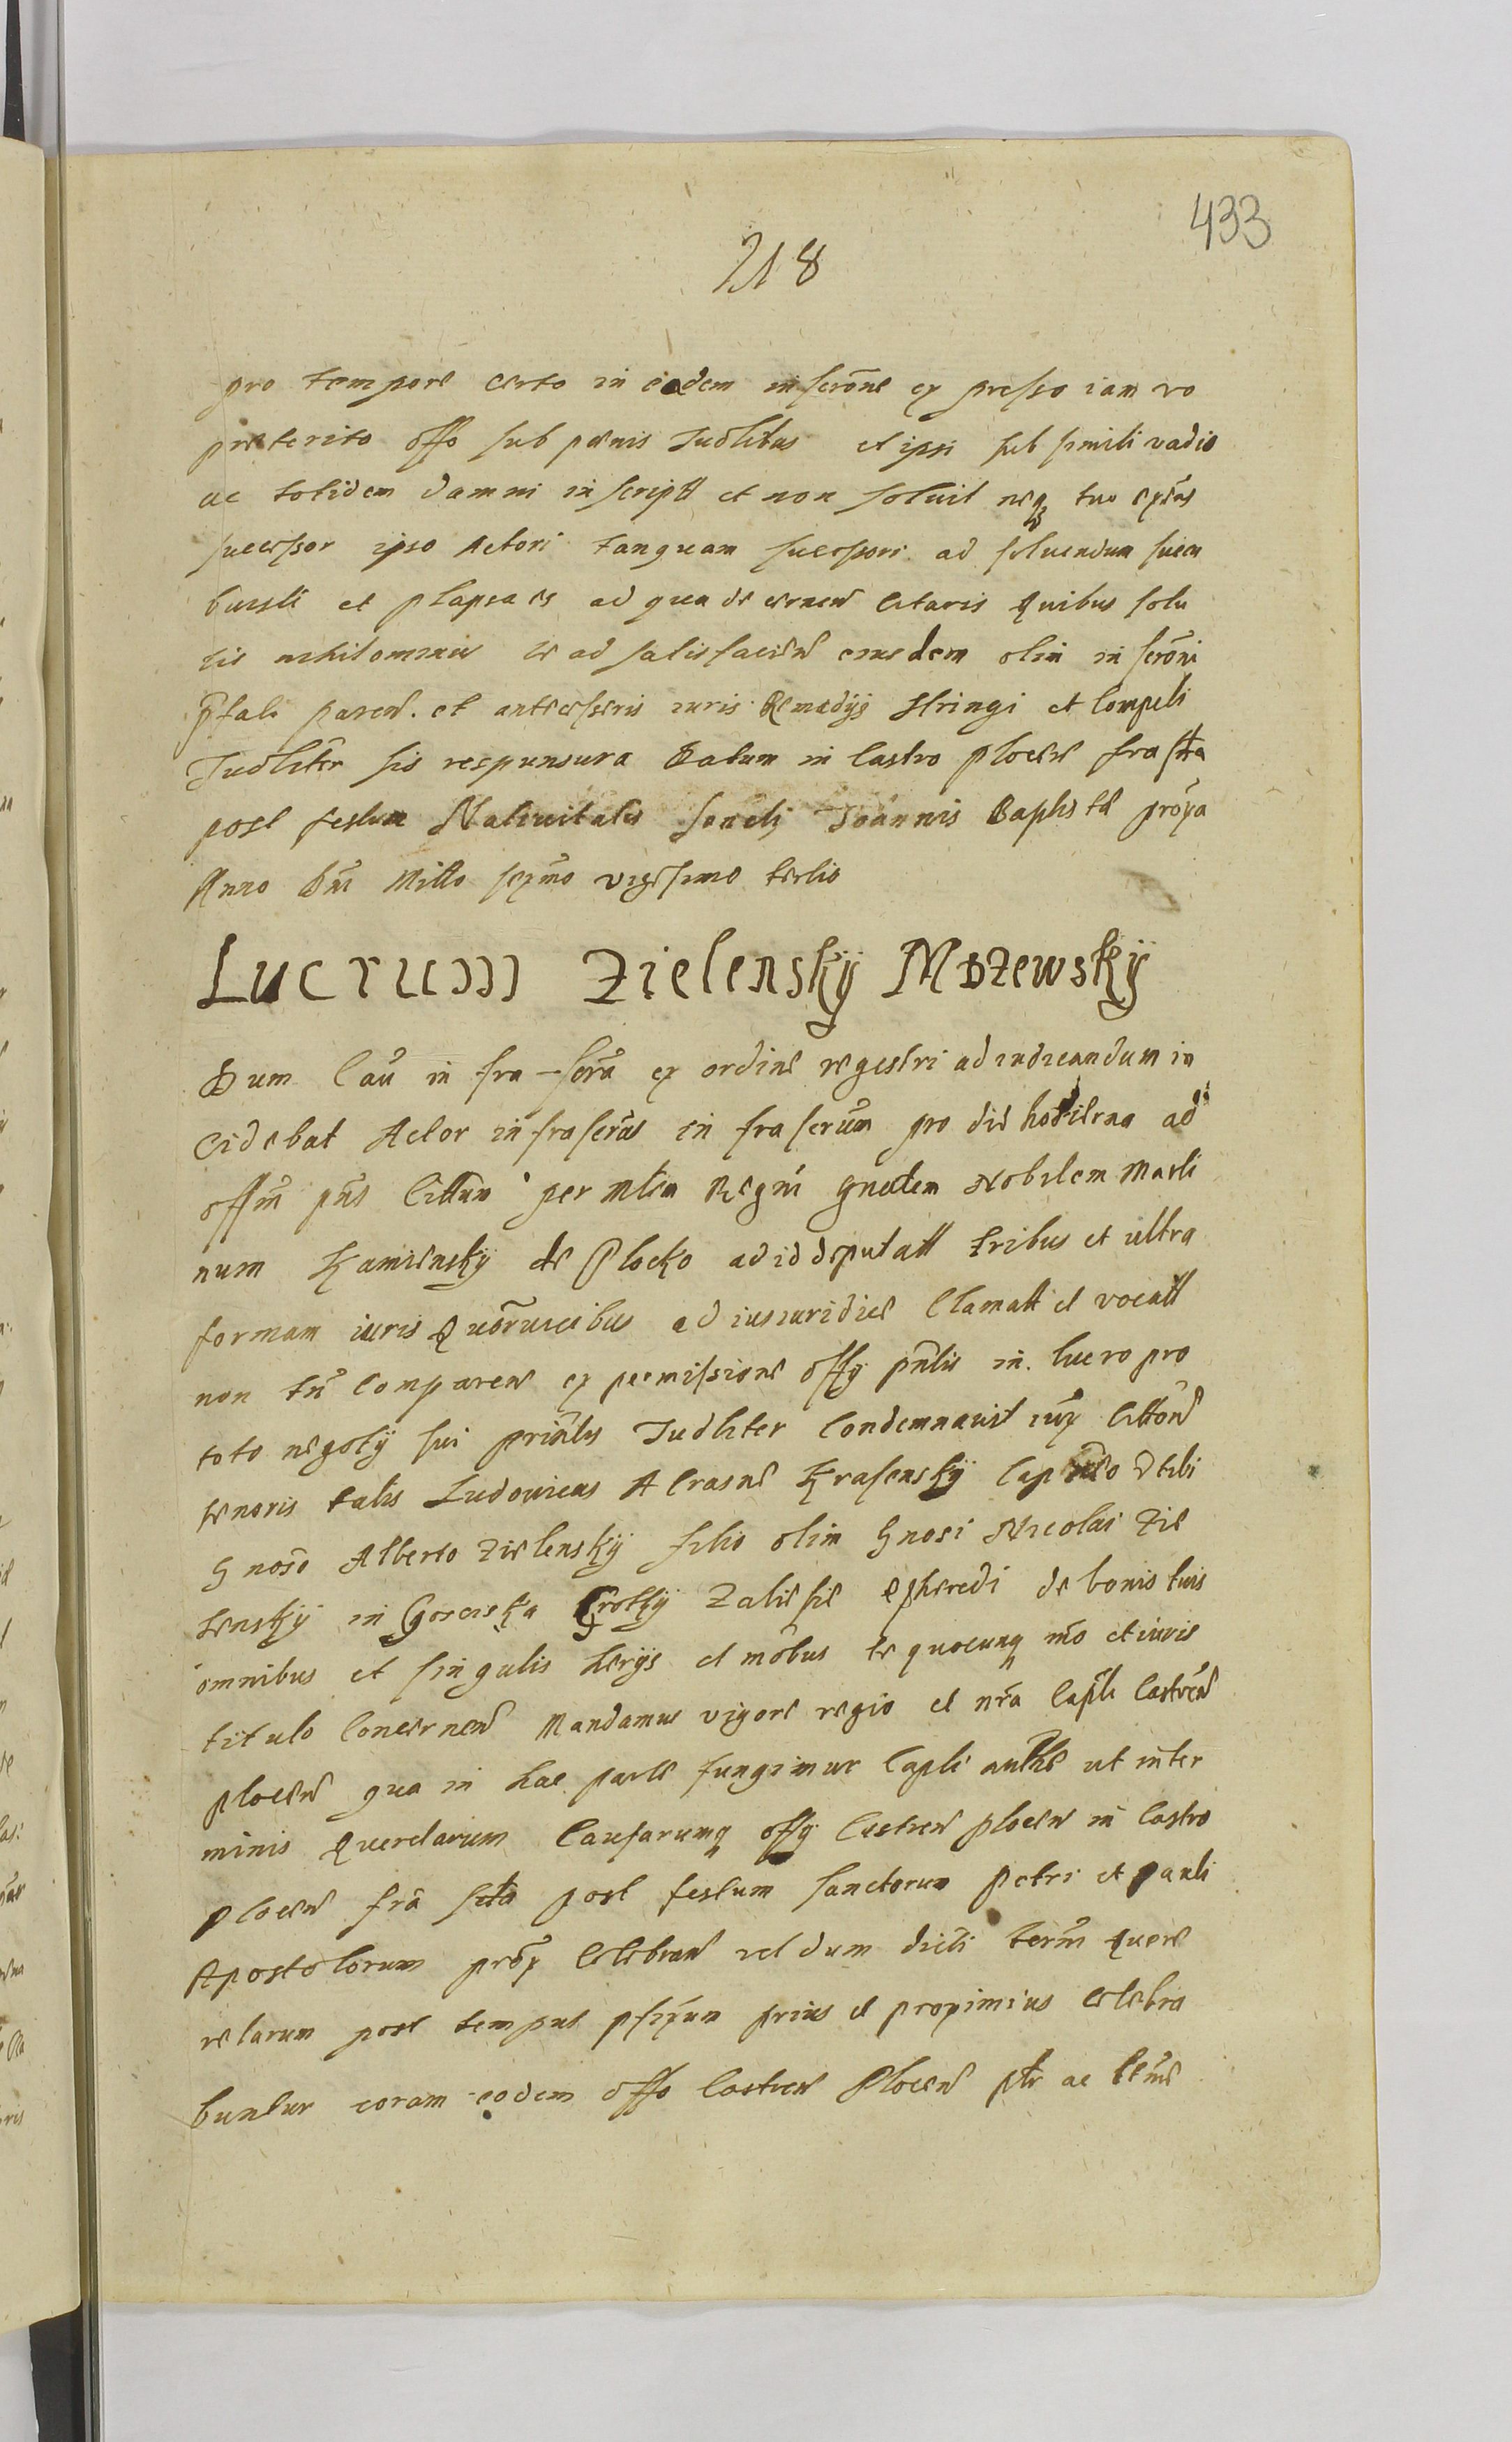 433
218
pro tempore certo in eadem inscrõne ex presso iam vo
præterito offo sub pœnis Judlibus et ipsi sub simili vadio
ac totidem damni inscriptt et non soluit neqз
successor ipso Actori tanquam successori ad soluendum succu
buisti et plapsa es ad qua decernen citaris Quibus solu
tis nihilominus te ad satisfacien eiusdem olim inscrõni
paren. et antecessoris iuris Remedijs stringi et Compelli
Judliter sis respunsura Datum in Castro plocen fra
post festum Natiuitatis Sancti Joannis Baptistæ proxa
Anno Dni Millo sexmo vigesimo tertio
Lucrum Zielenskÿ Mdzewskÿ
Dum Cau infra-scra ex ordine regestri ad iudicandum in
cidebat Actor infrascrus infrascrum pro die hodierna ad
offm pns Cittum per mlem Regni gnalem Nobilem Marti
num Kamienskÿ de Plocko ad id deputatt tribus et ultra
formam iuris Quoruscibus ad ius iuridice Clamatt et vocatt
non tn Comparen ex permissione offy pntis in lucro pro
toto negotÿ sui prinlis Judliter Condemnauit iux Citton
tenoris talis Ludouicus A Crasne Krasenskÿ tibi
Gnoso Alberto Zielenskÿ filio olim Gnosi Nicolai Zie
lenskÿ in Goreiska Crotkÿ Zaliesie et heredi de bonis tuis
omnibus et singulis herijs et mobus te quocunqз mõ et iuris
titulo Concernen Mandamus vigore regio et nra Capli Castren
plocen qua in hac parte fungimur Capli authe ut in ter
minis Querelarum Causarumqз offy Castren plocen in Castro
plocen fra sexta post festum Sanctorum Petri et Pauli
Apostolorum prox Celebran vel dum dicti term Quere
relarum post tempus pfixum prius et proximius celebra
buntur coram eodem offo Castren Plocen pltr ac